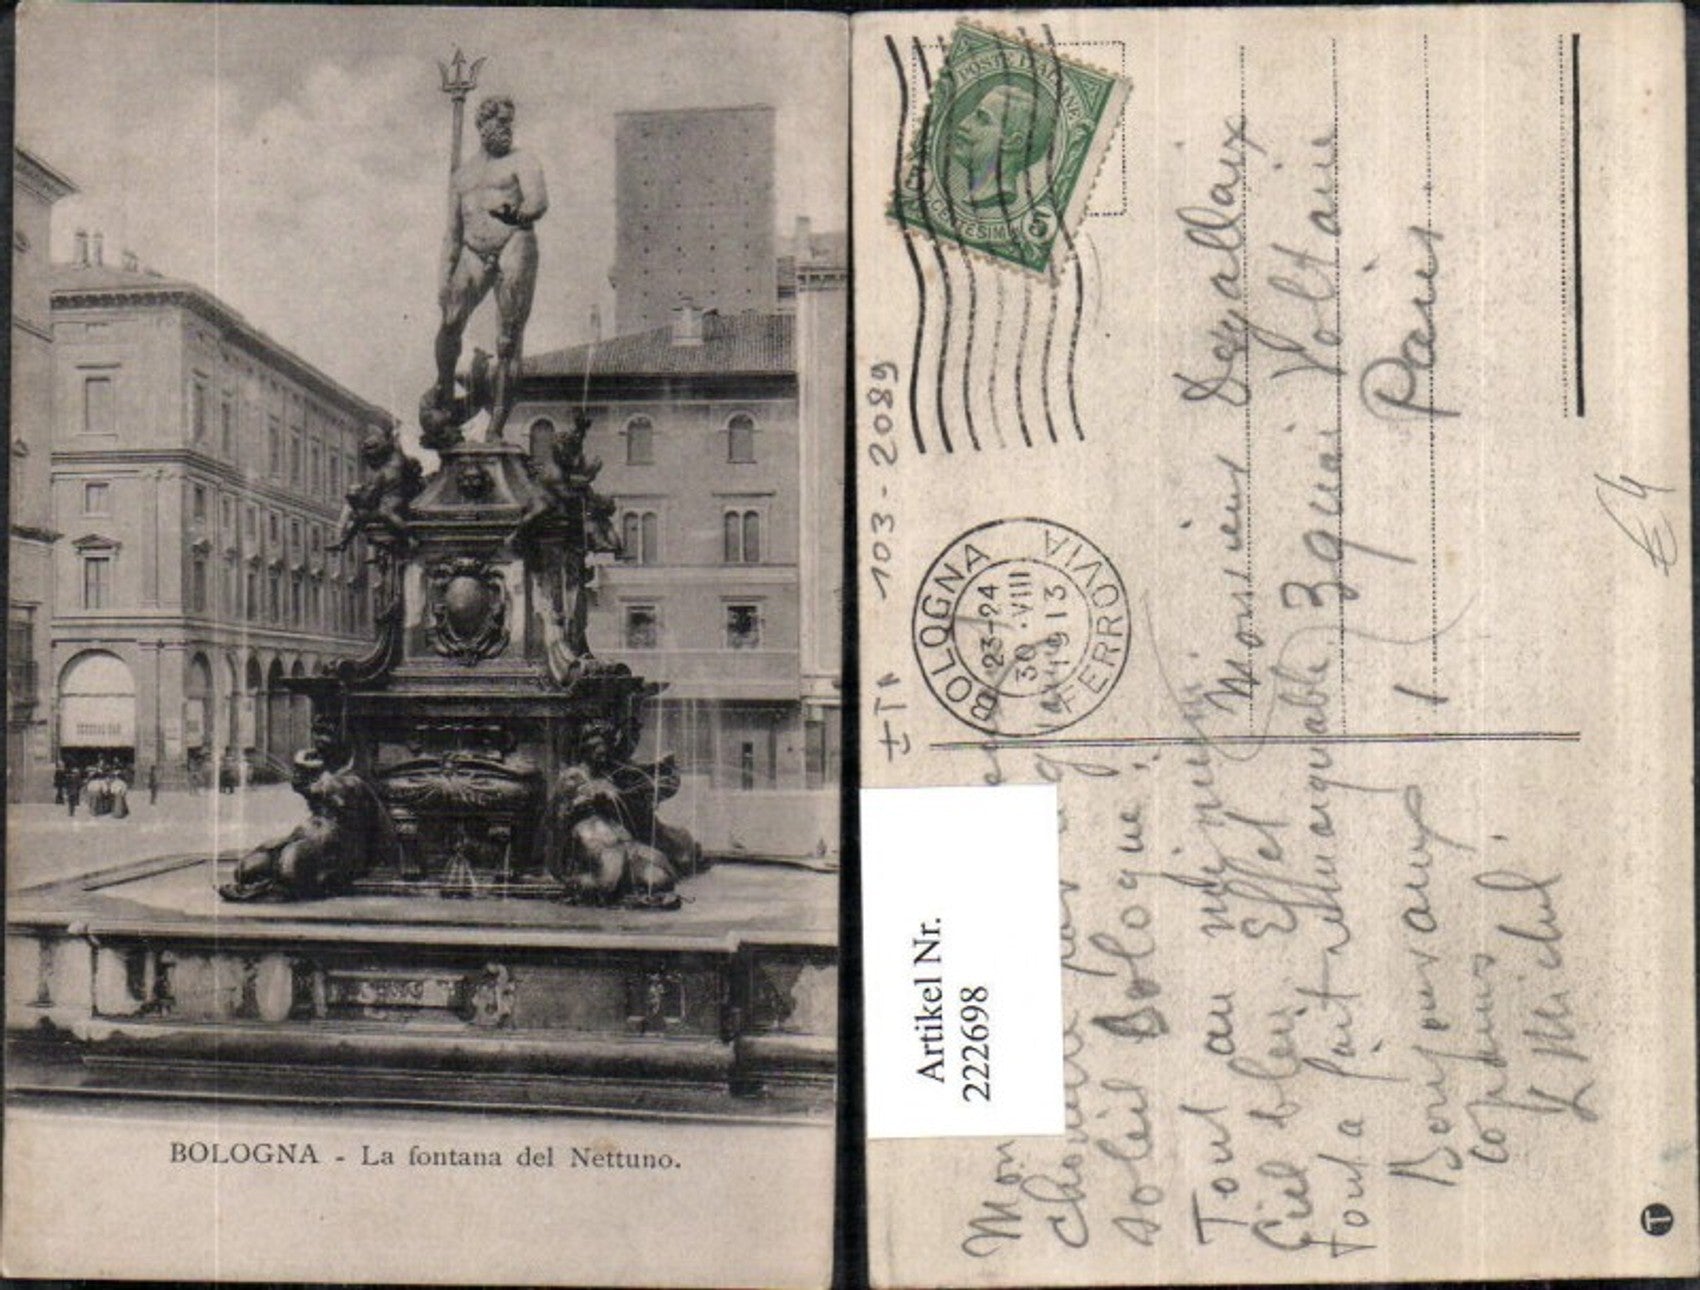 BOLOGNA - La fontana del Nettuno.
POSTE ITALIANE
CENTESIMI 5
103-2089
ITA
BOLOGNA FERROVIA
23-24
30·VIII
1913
Artikel Nr.
222698
€4
Monsieur
3 quai Voltaire
Paris
Mon
soleil Bologne!
Tout au
Ciel bleu Effet
tout a fait remarquable
Bonjour aux
copains
Michel
T